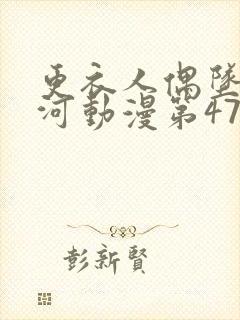 更衣人偶墜
河動漫第47
彭新賢